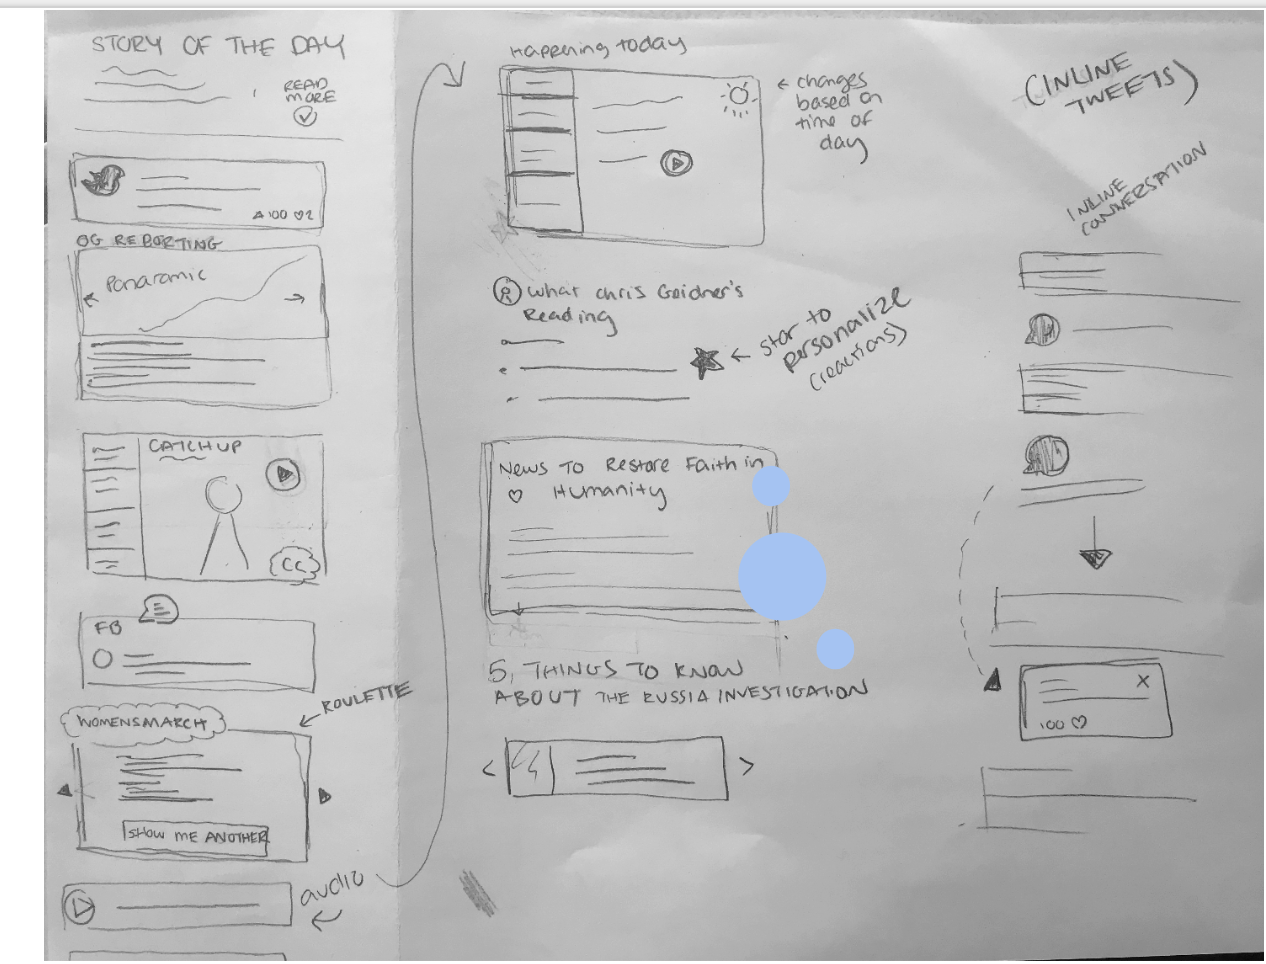 STORY OF THE DAY
READ
MORE
100 ♡2
OG REPORTING
Panaramic
CATCHUP
CC
FB
ROULETTE
WOMENSMARCH
SHOW ME ANOTHER
audio
Happening today
← changes
based on
time of
day
What Chris Geidner's
Reading
← Star to
personalize
(reactions)
News To Restore Faith in
♡ Humanity
5, THINGS TO KNOW
ABOUT THE RUSSIA INVESTIGATION
< >
(INLINE
TWEETS)
INLINE
CONVERSATION
X
100 ♡